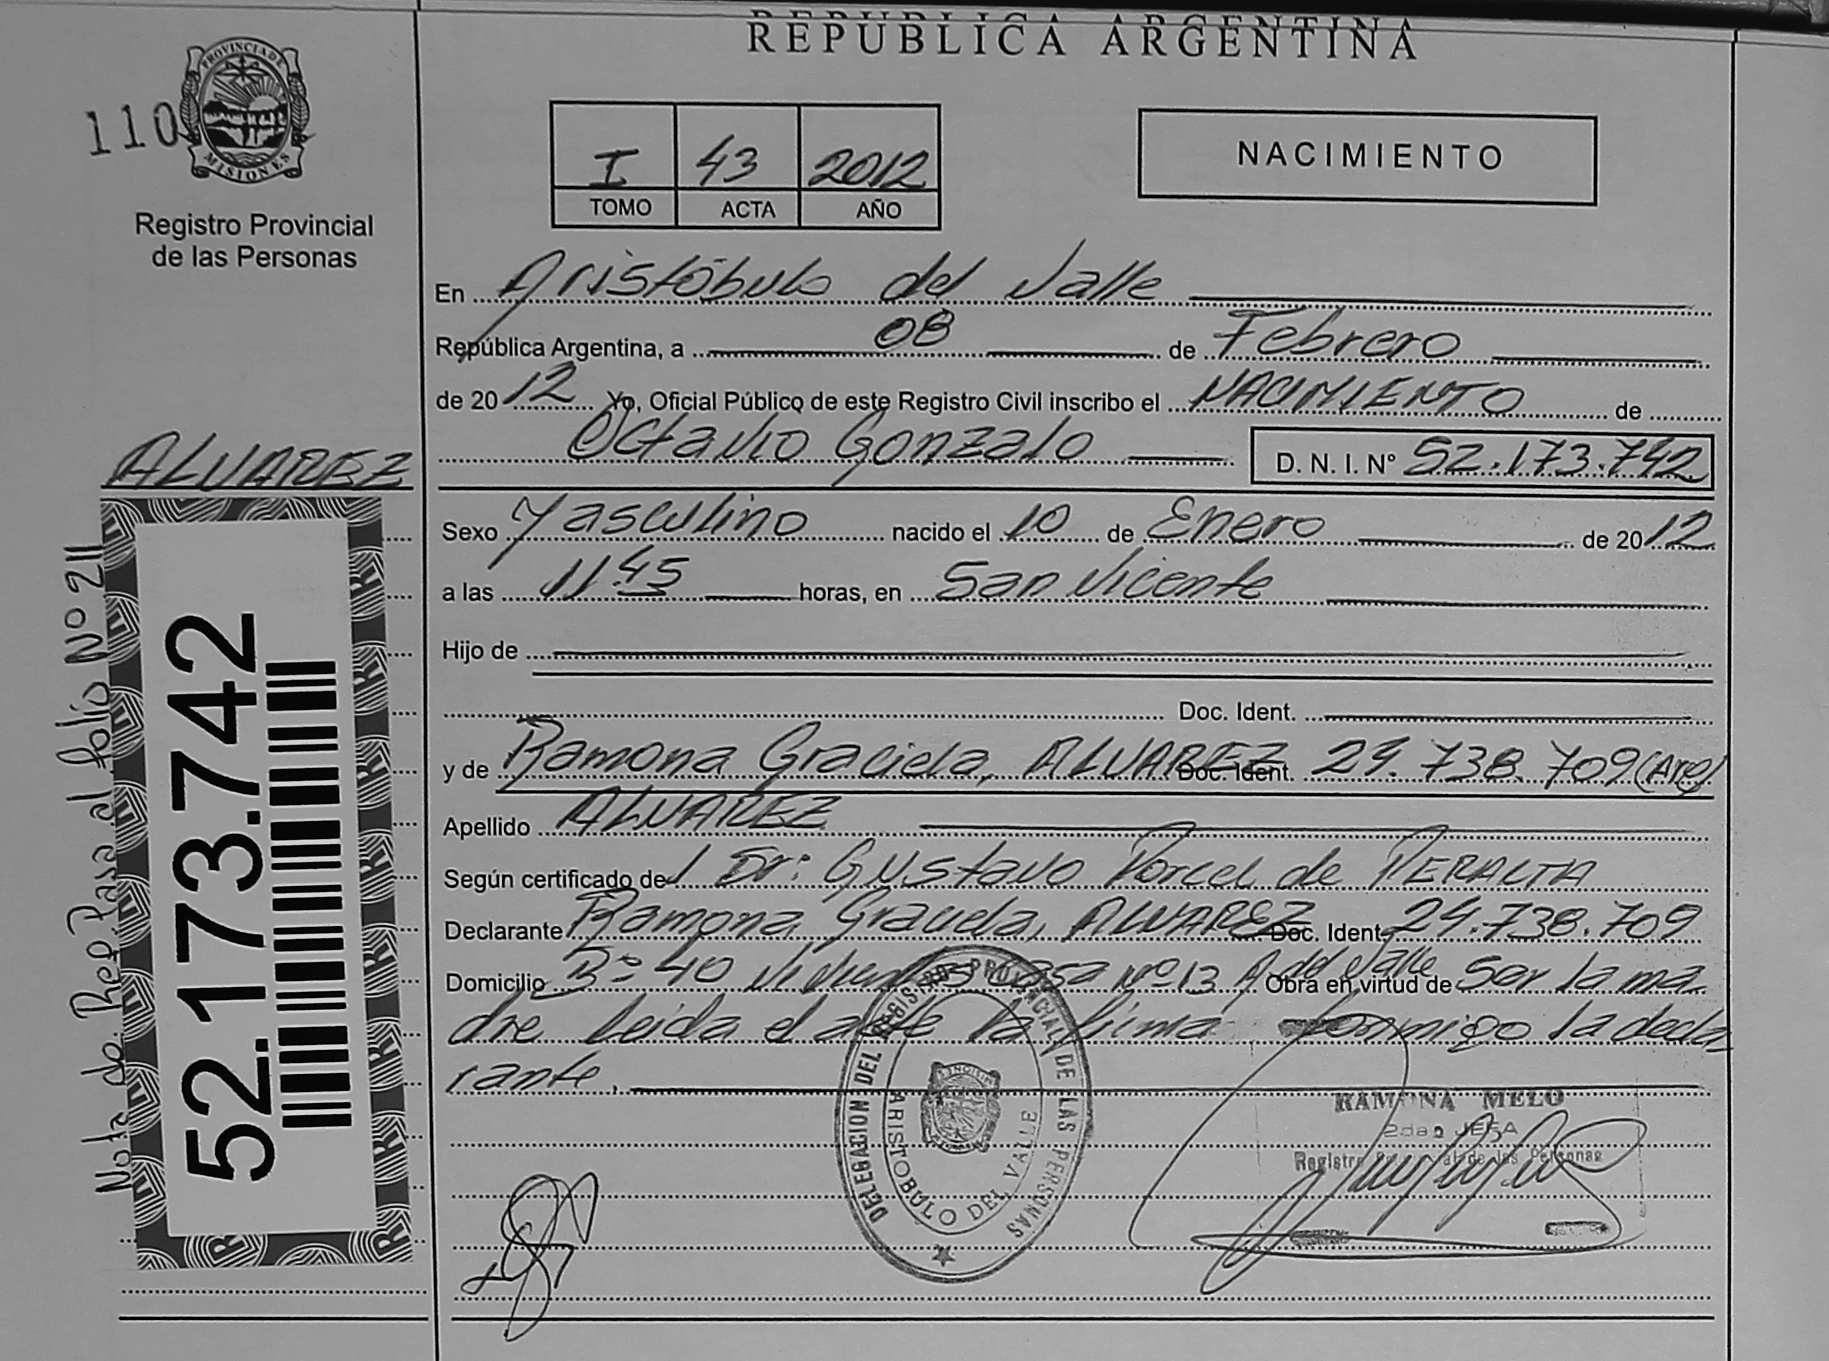 REPUBLICA ARGENTINA
110
PROVINCIA DE MISIONES
Registro Provincial
de las Personas
I 43 2012
TOMO ACTA AÑO
NACIMIENTO
En Aristóbulo del Valle
República Argentina, a 08 de Febrero
de 2012 Yo, Oficial Público de este Registro Civil inscribo el NACIMIENTO de
Octavio Gonzalo D. N. I. Nº 52.173.742
ALVAREZ
Sexo Masculino nacido el 10 de Enero de 2012
a las 11 45 horas, en San Vicente
Hijo de
Doc. Ident.
y de Ramona Graciela, ALVAREZ Doc. Ident. 24.738.709 (Arg)
Apellido ALVAREZ
Según certificado del Dr: Gustavo Porcel de PERALTA
Declarante Ramona Graciela, ALVAREZ Doc. Ident. 24.738.709
Domicilio Bº 40 Viviendas Casa Nº 13 A del Valle Obra en virtud de Ser la ma
dre Leida el acta la firma conmigo la decla
rante.
52.173.742
Nota de Ref. Pasa al folio Nº 211
DELEGACION DEL REGISTRO PROVINCIAL DE LAS PERSONAS
ARISTOBULO DEL VALLE
MISIONES
RAMONA MELO
2da JEFA
Registro Provincial de las Personas